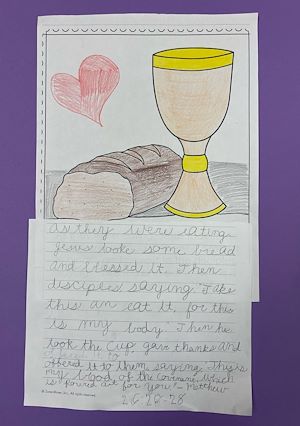 as they were eating
Jesus tooke some bread
and blessed it. Then
disciples saying "Take
this an eat it, for this
is my body." Then he
took the Cup, gave thanks and
offered it to them, saying This is
my blood of the Covenant, which
is poured out for you!- Matthew
26:26-28
All rights reserved.